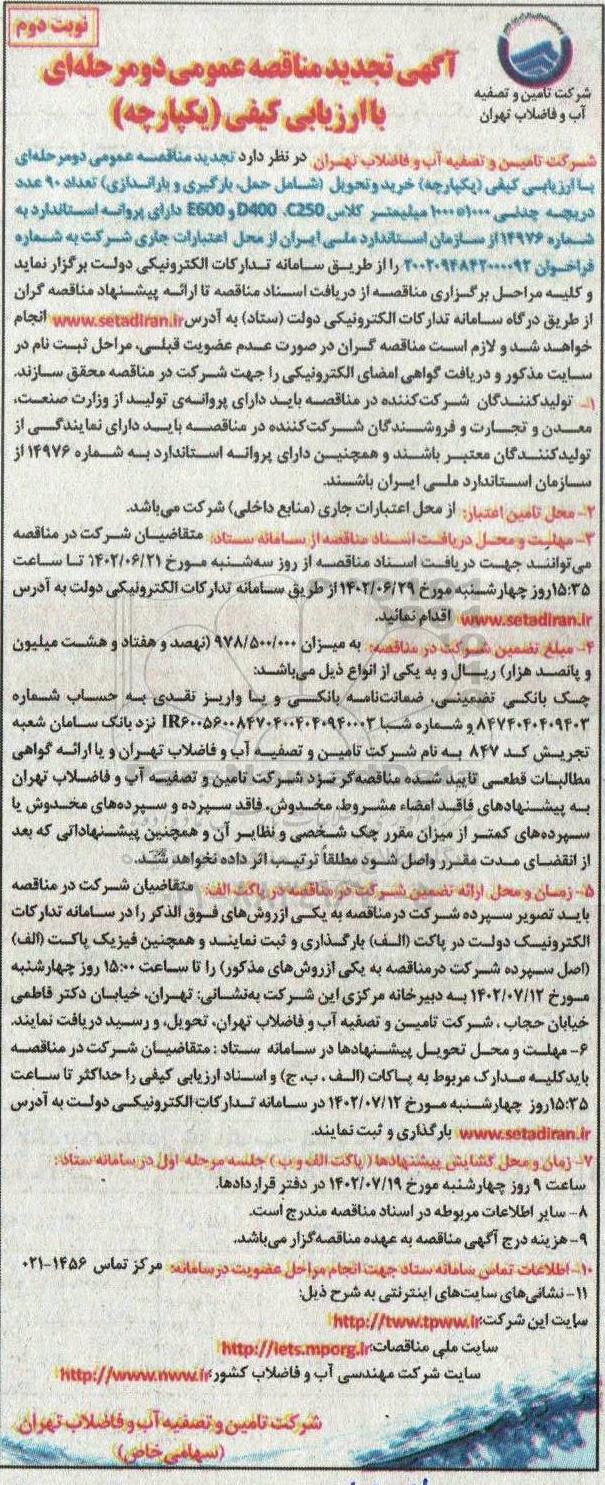 نوبت دوم
شرکت تامین و تصفیه
آب و فاضلاب تهران
آگهی تجدید مناقصه عمومی دومرحله‌ای
با ارزیابی کیفی (یکپارچه)
شرکت تامین و تصفیه آب و فاضلاب تهران در نظر دارد تجدید مناقصه عمومی دومرحله‌ای
با ارزیابی کیفی (یکپارچه) خرید و تحویل (شامل حمل، بارگیری و باراندازی) تعداد ۹۰ عدد
دریچه چدنی ۱۰۰۰*۱۰۰۰ میلیمتر کلاس D400 ،C250 و E600 دارای پروانه استاندارد به
شماره ۱۴۹۷۶ از سازمان استاندارد ملی ایران از محل اعتبارات جاری شرکت به شماره
فراخوان ۲۰۰۲۰۹۴۸۴۲۰۰۰۰۹۲ را از طریق سامانه تدارکات الکترونیکی دولت برگزار نماید
و کلیه مراحل برگزاری مناقصه از دریافت اسناد مناقصه تا ارائه پیشنهاد مناقصه گران
از طریق درگاه سامانه تدارکات الکترونیکی دولت (ستاد) به آدرس www.setadiran.ir انجام
خواهد شد و لازم است مناقصه گران در صورت عدم عضویت قبلی، مراحل ثبت نام در
سایت مذکور و دریافت گواهی امضای الکترونیکی را جهت شرکت در مناقصه محقق سازند.
۱- تولیدکنندگان شرکت‌کننده در مناقصه باید دارای پروانه‌ی تولید از وزارت صنعت،
معدن و تجارت و فروشندگان شرکت‌کننده در مناقصه باید دارای نمایندگی از
تولیدکنندگان معتبر باشند و همچنین دارای پروانه استاندارد به شماره ۱۴۹۷۶ از
سازمان استاندارد ملی ایران باشند.
۲- محل تامین اعتبار: از محل اعتبارات جاری (منابع داخلی) شرکت می‌باشد.
۳- مهلت و محل دریافت اسناد مناقصه از سامانه ستاد: متقاضیان شرکت در مناقصه
می‌توانند جهت دریافت اسناد مناقصه از روز سه‌شنبه مورخ ۱۴۰۲/۰۶/۲۱ تا ساعت
۱۵:۳۵ روز چهارشنبه مورخ ۱۴۰۲/۰۶/۲۹ از طریق سامانه تدارکات الکترونیکی دولت به آدرس
www.setadiran.ir اقدام نمائید.
۴- مبلغ تضمین شرکت در مناقصه: به میزان ۹۷۸/۵۰۰/۰۰۰ (نهصد و هفتاد و هشت میلیون
و پانصد هزار) ریال و به یکی از انواع ذیل می‌باشد:
چک بانکی تضمینی، ضمانت‌نامه بانکی و یا واریز نقدی به حساب شماره
۸۴۷۴۰۴۰۴۰۹۴۰۳ و شماره شبا IR۶۰۰۵۶۰۰۸۴۷۰۴۰۰۴۰۴۰۹۴۰۰۳ نزد بانک سامان شعبه
تجریش کد ۸۴۷ به نام شرکت تامین و تصفیه آب و فاضلاب تهران و یا ارائه گواهی
مطالبات قطعی تایید شده مناقصه‌گر نزد شرکت تامین و تصفیه آب و فاضلاب تهران
به پیشنهادهای فاقد امضاء مشروط، مخدوش، فاقد سپرده و سپرده‌های مخدوش یا
سپرده‌های کمتر از میزان مقرر چک شخصی و نظایر آن و همچنین پیشنهاداتی که بعد
از انقضای مدت مقرر واصل شود مطلقاً ترتیب اثر داده نخواهد شد.
۵- زمان و محل ارائه تضمین شرکت در مناقصه در پاکت الف: متقاضیان شرکت در مناقصه
باید تصویر سپرده شرکت در مناقصه به یکی از روش‌های فوق الذکر را در سامانه تدارکات
الکترونیک دولت در پاکت (الف) بارگذاری و ثبت نمایند و همچنین فیزیک پاکت (الف)
(اصل سپرده شرکت درمناقصه به یکی ازروش‌های مذکور) را تا ساعت ۱۵:۰۰ روز چهارشنبه
مورخ ۱۴۰۲/۰۷/۱۲ به دبیرخانه مرکزی این شرکت به‌نشانی: تهران، خیابان دکتر فاطمی
خیابان حجاب ، شرکت تامین و تصفیه آب و فاضلاب تهران، تحویل، و رسید دریافت نمایند.
۶- مهلت و محل تحویل پیشنهادها در سامانه ستاد : متقاضیان شرکت در مناقصه
بایدکلیه مدارک مربوط به پاکات (الف ، ب، ج) و اسناد ارزیابی کیفی را حداکثر تا ساعت
۱۵:۳۵ روز چهارشنبه مورخ ۱۴۰۲/۰۷/۱۲ در سامانه تدارکات الکترونیکی دولت به آدرس
www.setadiran.ir بارگذاری و ثبت نمایند.
۷- زمان و محل گشایش پیشنهادها ( پاکت الف و ب ) جلسه مرحله اول در سامانه ستاد:
ساعت ۹ روز چهارشنبه مورخ ۱۴۰۲/۰۷/۱۹ در دفتر قراردادها.
۸- سایر اطلاعات مربوطه در اسناد مناقصه مندرج است.
۹- هزینه درج آگهی مناقصه به عهده مناقصه‌گزار می‌باشد.
۱۰- اطلاعات تماس سامانه ستاد جهت انجام مراحل عضویت درسامانه: مرکز تماس ۱۴۵۶-۰۲۱
۱۱- نشانی‌های سایت‌های اینترنتی به شرح ذیل:
سایت این شرکت: http://tww.tpww.ir
سایت ملی مناقصات: http://iets.mporg.ir
سایت شرکت مهندسی آب و فاضلاب کشور: http://www.nww.ir
شرکت تامین و تصفیه آب و فاضلاب تهران
(سهامی خاص)